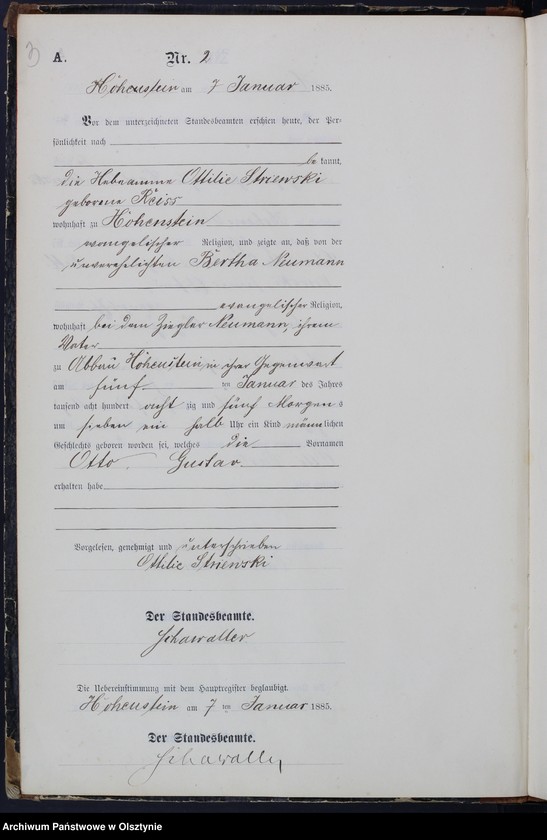 3
A.
Nr. 2
Hohenstein am 7 Januar 1885.
Vor dem unterzeichneten Standesbeamten erschien heute, der Per-
sönlichkeit nach
be kannt,
die Hebeamme Ottilie Striewski
geborene Reiss
wohnhaft zu Hohenstein
evangelischer Religion, und zeigte an, daß von der
unverehelichten Bertha Neumann
evangelischer Religion,
wohnhaft bei dem Ziegler Neumann, ihrem
Vater
zu Abbau Hohenstein in ihrer Gegenwart
am fünf ten Januar des Jahres
tausend acht hundert acht zig und fünf Morgens
um sieben ein halb Uhr ein Kind männlichen
Geschlechts geboren worden sei, welches die Vornamen
Otto Gustav
erhalten habe
Vorgelesen, genehmigt und unterschrieben
Ottilie Striewski
Der Standesbeamte.
Schawaller
Die Uebereinstimmung mit dem Hauptregister beglaubigt.
Hohenstein am 7 ten Januar 1885.
Der Standesbeamte.
Schawaller
Archiwum Państwowe w Olsztynie